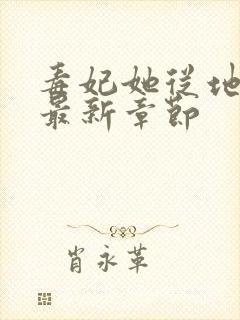 毒妃她从地
最新章節
肖永革